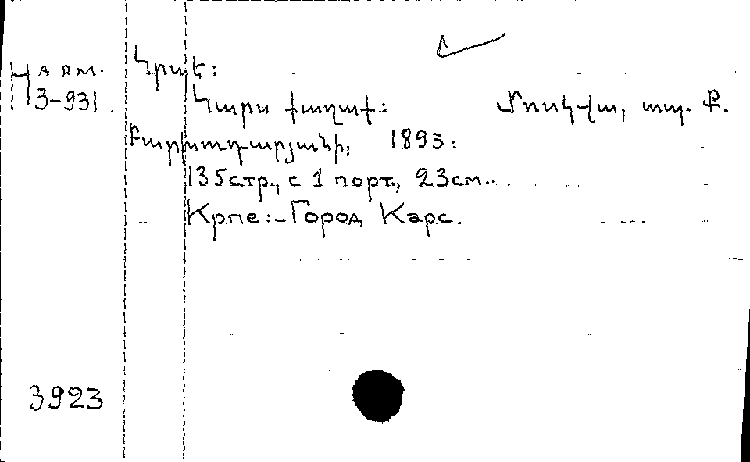 Կրպե:
Н арм.
3-931
Կարս քաղաք: Մոսկվա, տպ. Ք.
Բարխուդարյանի, 1893:
135стр., с 1 порт., 23см..
Крпе:-Город Карс.
3923